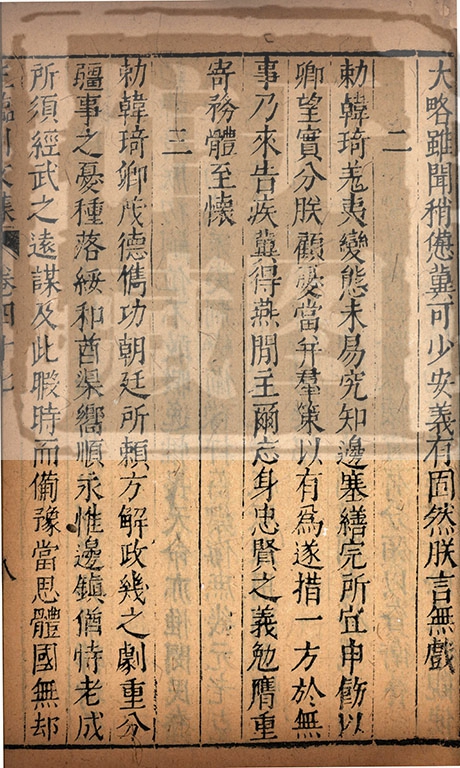 大略雖聞稍憊冀可少安義有固然朕言無戲
二
勅韓琦羗夷變態未易究知邊塞繕完所宜申飭以
卿望實分朕顧憂當并羣策以有爲遂措一方於無
事乃來告疾冀得燕閒主爾忘身忠賢之義勉膺重
寄務體至懷
三
勅韓琦卿茂德儁功朝廷所賴方解政幾之劇重分
疆事之憂種落綏和酋渠嚮順永惟邊鎮倚特老成
所須經武之遠謀及此暇時而備豫當思體國無却
王臨川文集 卷四十七 八